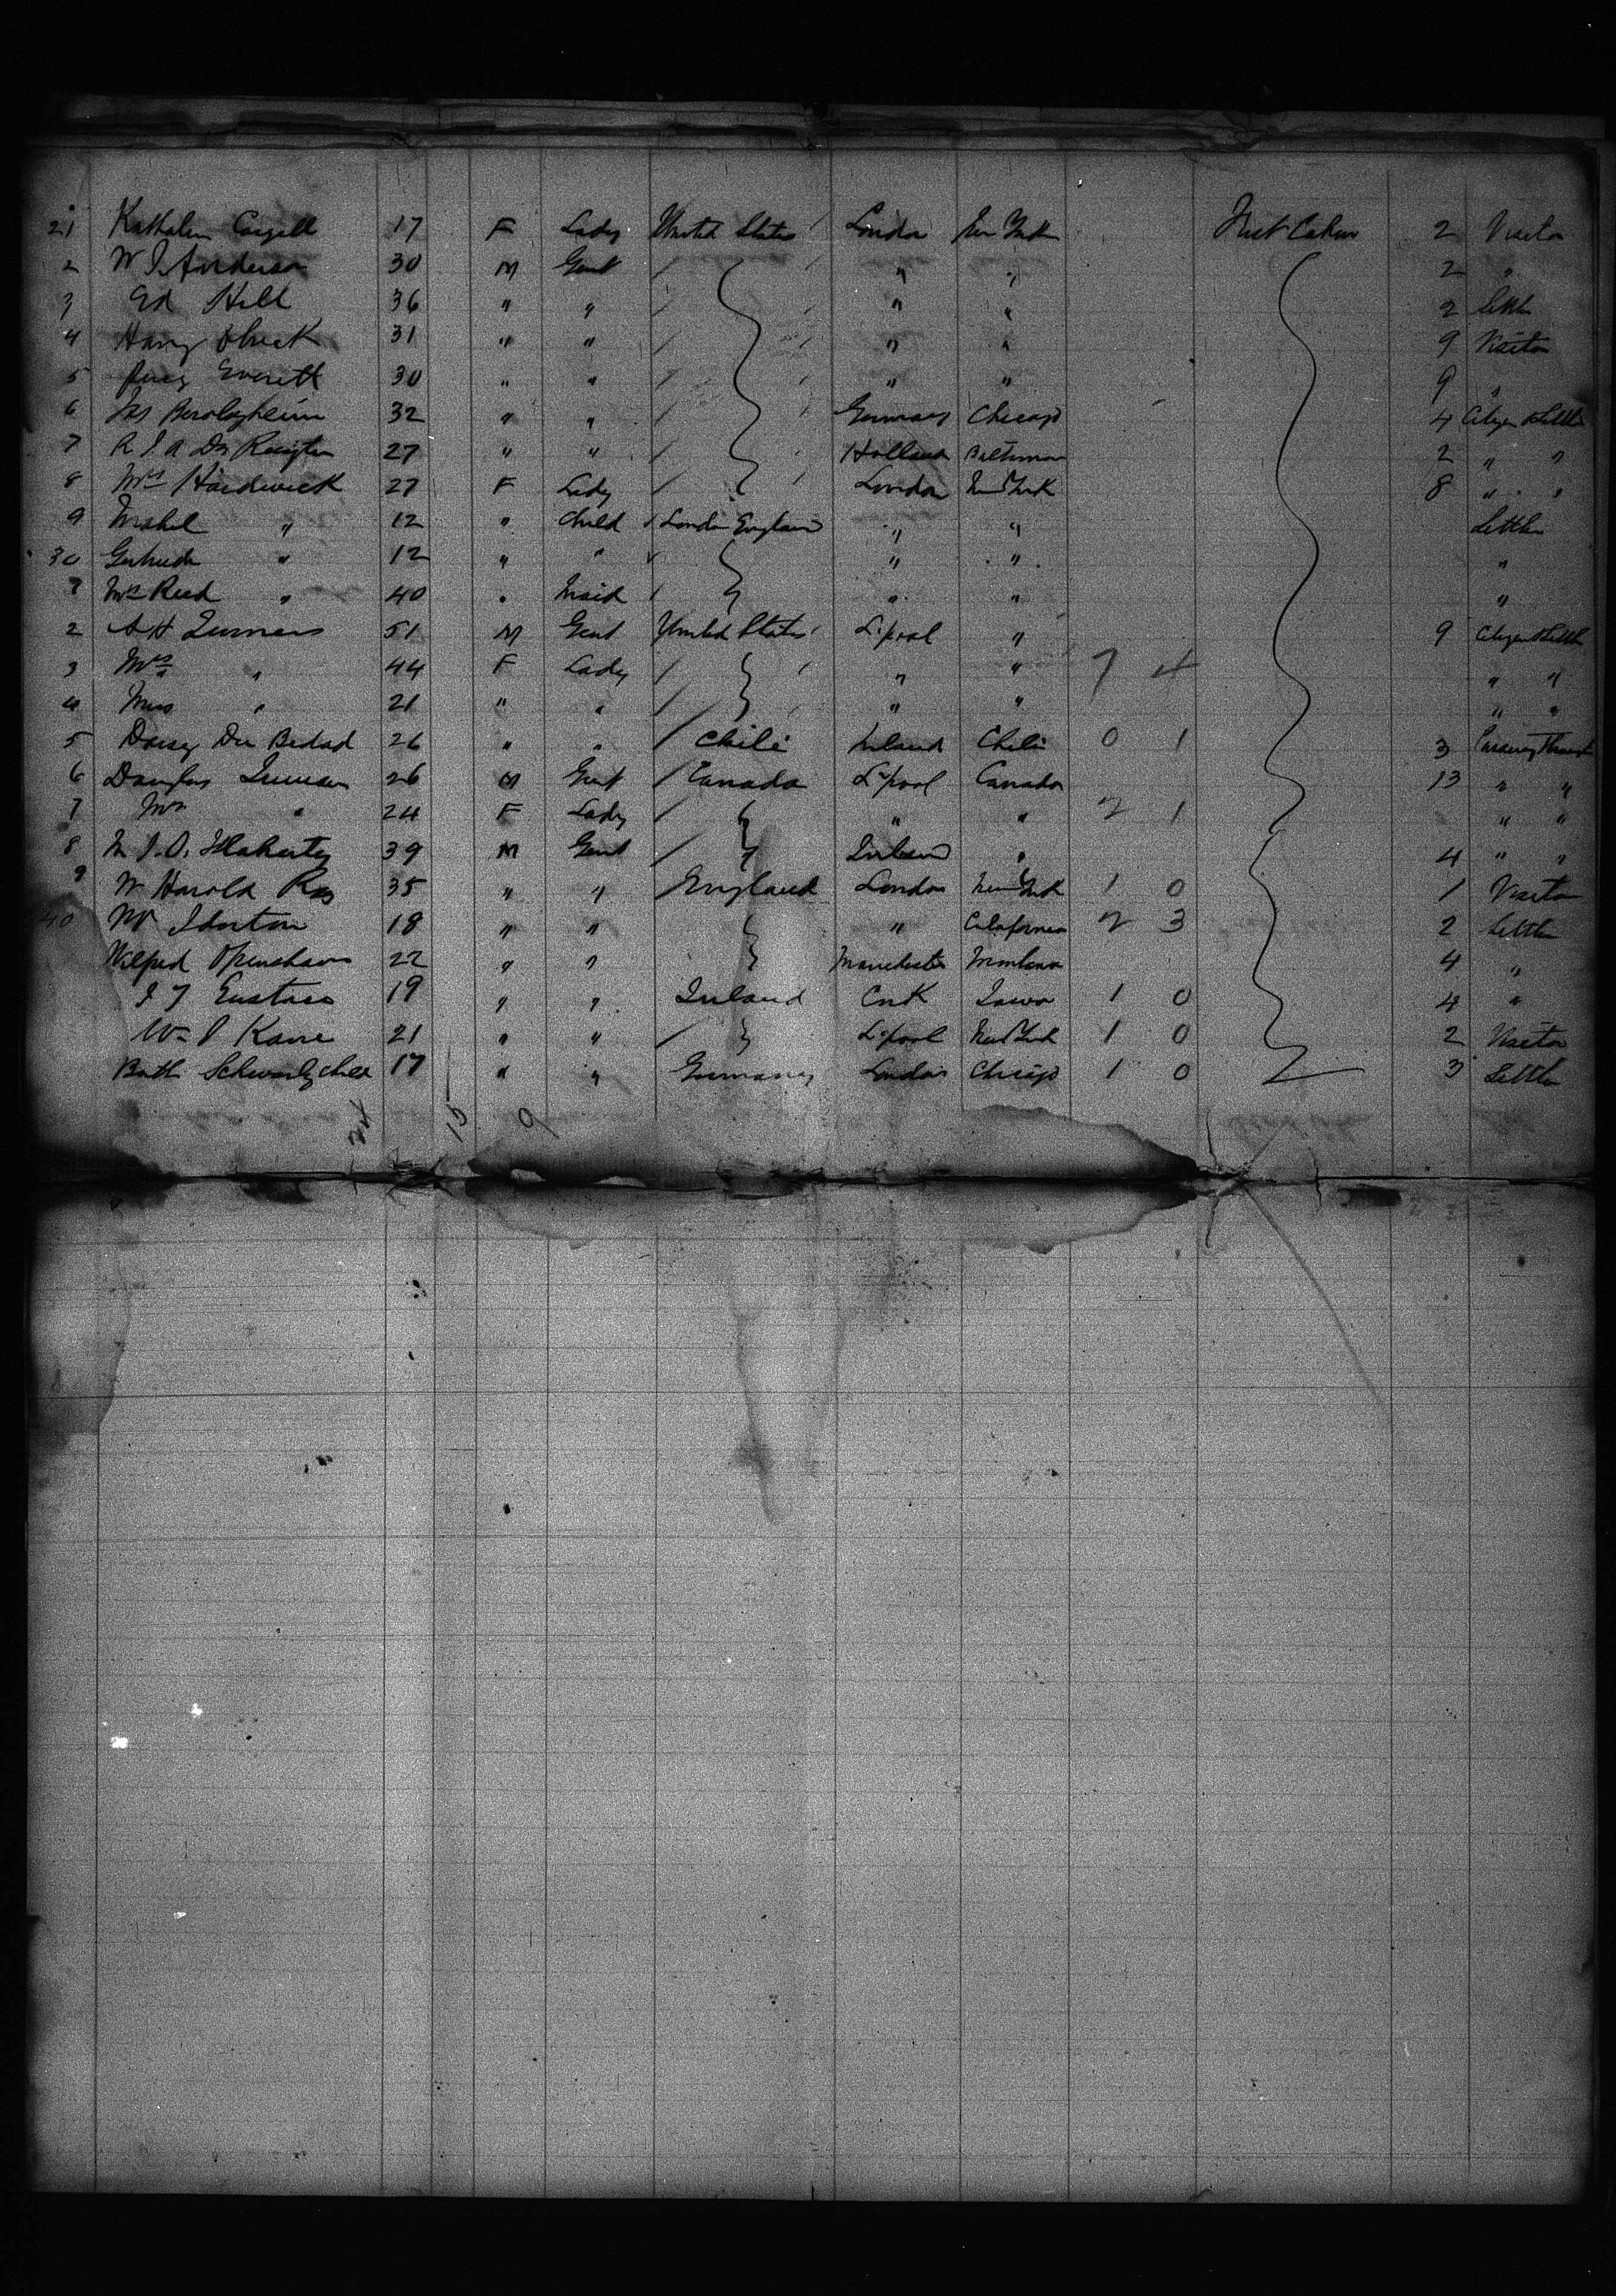 21 Kathaleen Cargill 17 F Lady United States London New York First Cabin 2 Visitor
2 W J Anderson 30 M Gent / " " 2 "
3 Ed Hill 36 " " / " " 2 Settler
4 Harry 31 " " / " " 9 Visitor
5 Percy Everett 30 " " / " " 9 "
6 Berolzheim 32 " " / Germany Chicago 4 Citizen Settler
7 R J A De 27 " " / Holland Baltimore 2 " "
8 Mrs Hardwick 27 F Lady / London New York 8 " "
9 Mabel " 12 " Child London England " " Settler
30 Gertrude " 12 " " " " "
Mrs Reed " 40 " Maid / " " "
2 A H Turners 51 M Gent United States L'pool " 9 Citizen Settler
3 Mrs " 44 F Lady / " " 7 4 " "
4 Miss " 21 " " / " " " "
5 Daisy Du Bedad 26 " " / Chili Ireland Chili 0 1 3 Passing Through
6 Douglas 26 M Gent / Canada L'pool Canada 13 " "
7 Mrs " 24 F Lady / " " 2 1 " "
8 M J O. Flaherty 39 M Gent / Ireland " 4 " "
9 W Harold 35 " " England London New York 1 0 1 Visitor
40 W 18 " " " California 2 3 2 Settler
Wilfred Openshaw 22 " " Manchester Montana 4 "
J J Eustace 19 " " Ireland Cork Iowa 1 0 4 "
Wm J Kane 21 " " / L'pool New York 1 0 2 Visitor
Schwarzschild 17 " " Germany London Chicago 1 0 3 Settler
24 15 9